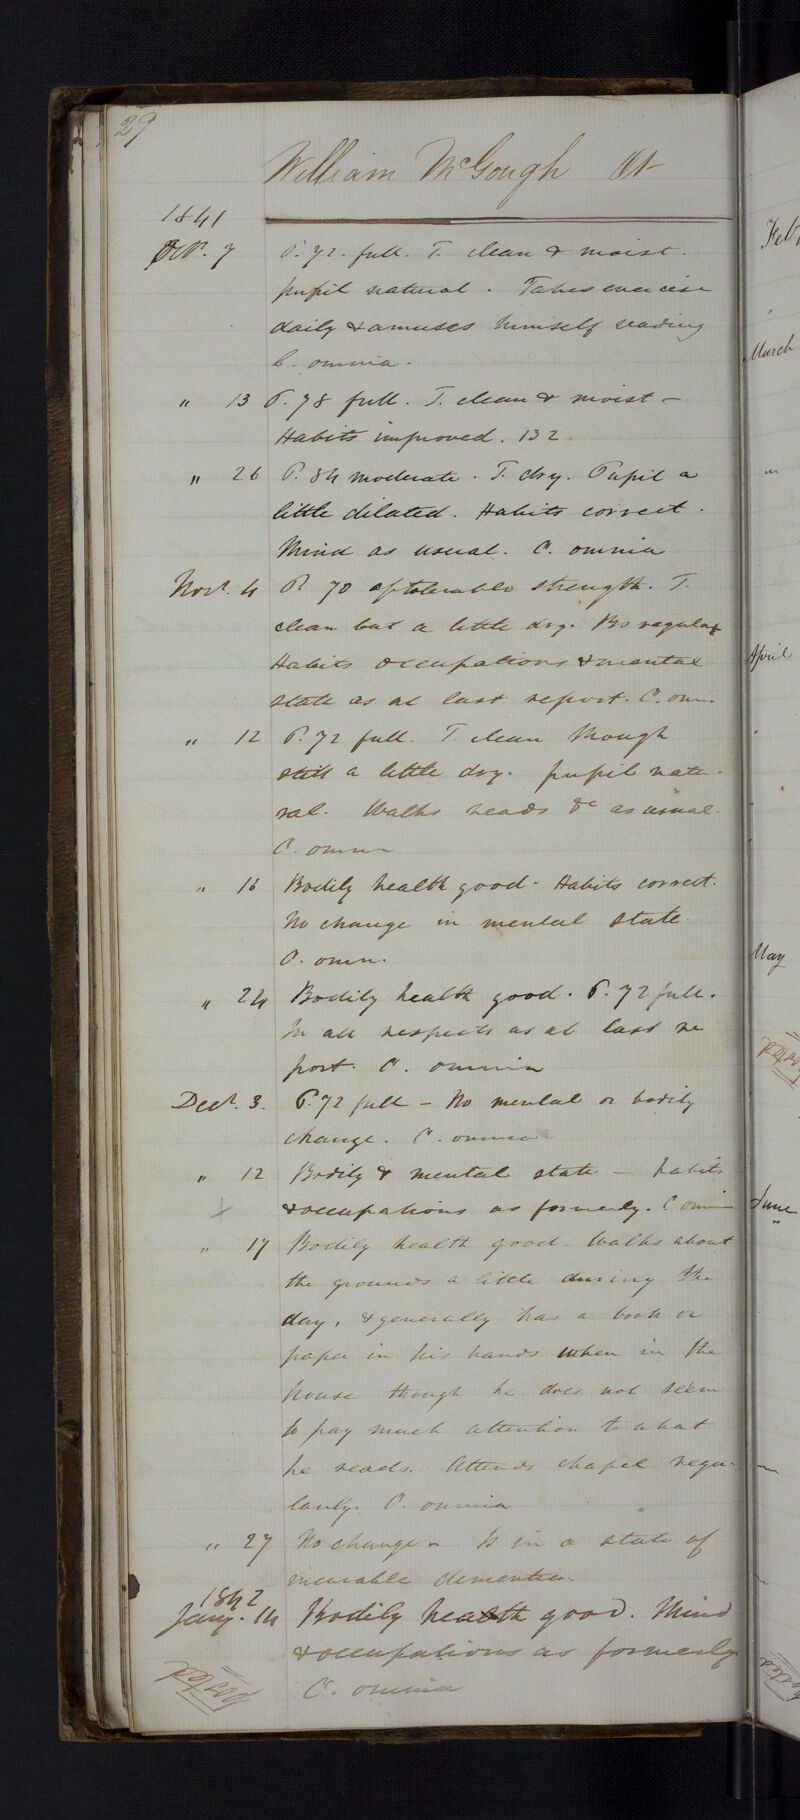 29
William McGough
1841
Oct. 7 P. 72. full. T. clean & moist.
pupil natural. Takes exercise
daily & amuses himself reading
C. omnia.
" 13 P. 78 full. T. clean & moist -
Habits improved. 132
" 26 P. 84 moderate. T. dry. Pupil a
little dilated. Habits correct.
Mind as usual. C. omnia
Novr. 4 P. 70 of tolerable strength. T.
clean but a little dry. Bs regular
Habits occupations & mental
state as at last report. C. om.
" 12 P. 72 full. T. clean though
still a little dry. pupil natu-
ral. Walks reads &c as usual.
C. omn
" 16 Bodily health good - Habits correct.
No change in mental state.
C. omn.
" 24 Bodily health good. P. 72 full.
In all respects as at last re
port. C. omnia
Decr. 3. P. 72 full - No mental or bodily
change. C. omnia
" 12 Bodily & mental state - habits
& occupations as formerly. C omn
x
" 17 Bodily health good. Walks about
the grounds a little during the
day, & generally has a book or
paper in his hands when in the
house though he does not seem
to pay much attention to what
he reads. Attends chapel regu-
larly. C. omnia
" 27 No change - Is in a state of
incurable dementia
1842
Jany. 14 Bodily health good. Mind
& occupations as formerly
C. omnia
Posted
Feb
"
March
"
April
"
May
Posted
June
"
Posted